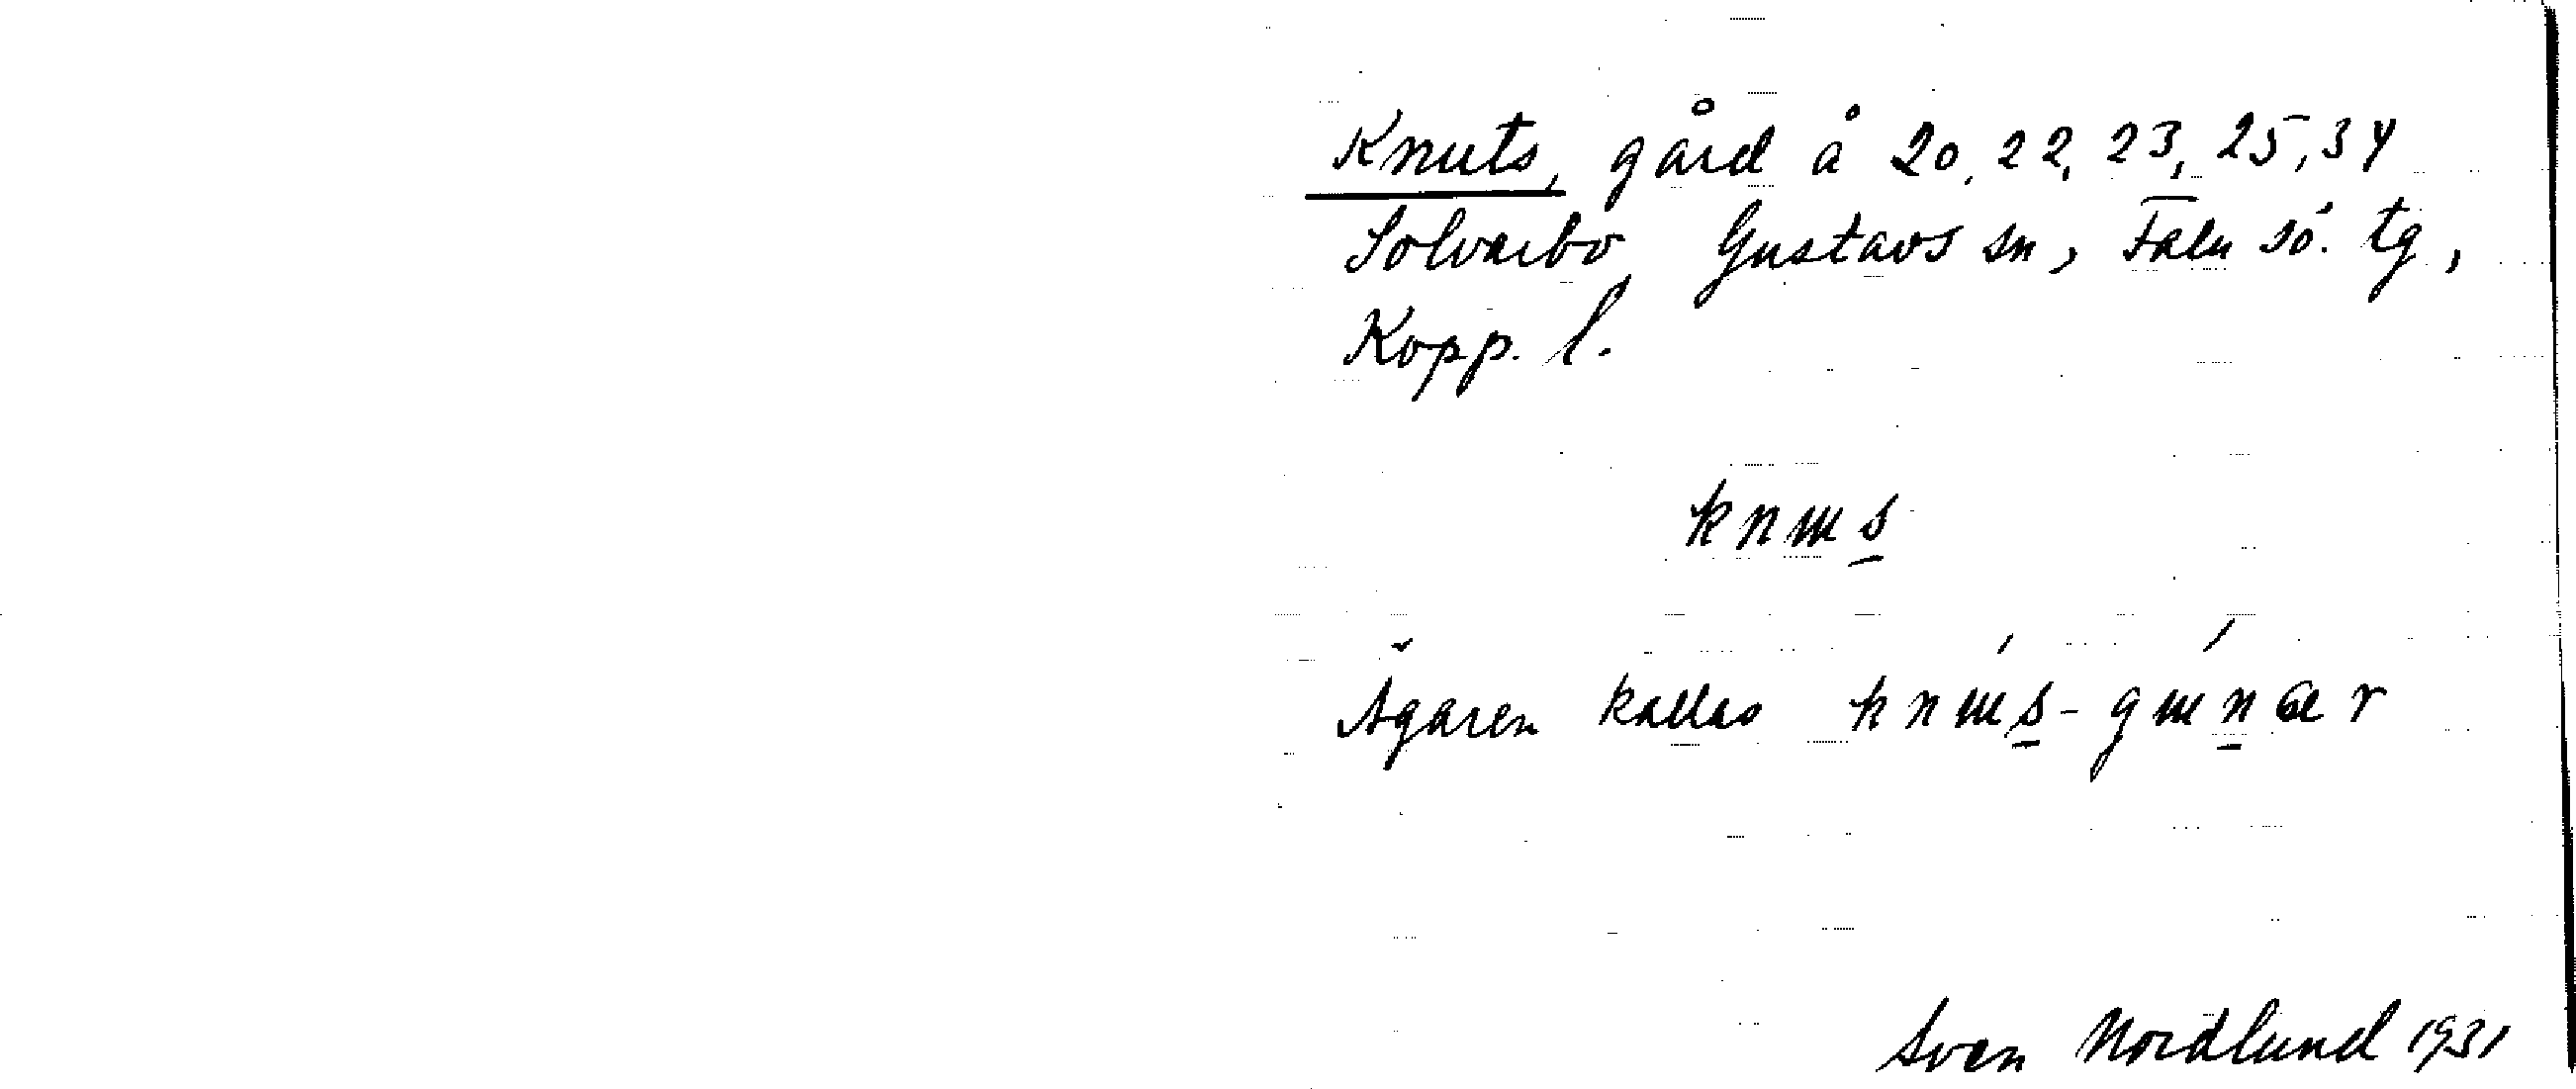 Knuts, gård å 20, 22, 23, 25, 34
Solvarbo, Gustavs sn, Falu sö. tg,
Kopp. l.
knɯs̲
Ägaren kallas knɯ́s̲-gɯ́n̲ær
Sven Nordlund 1931